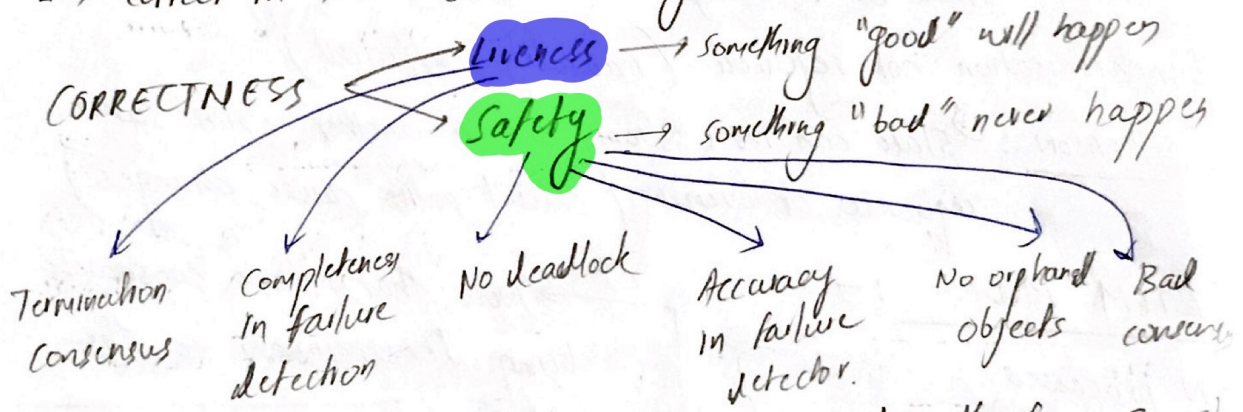 Liveness → something "good" will happen
CORRECTNESS
Safety → something "bad" never happen
Termination
consensus
Completeness
in failure
detection
No deadlock
Accuracy
in failure
detector.
No orphand
objects
Bad